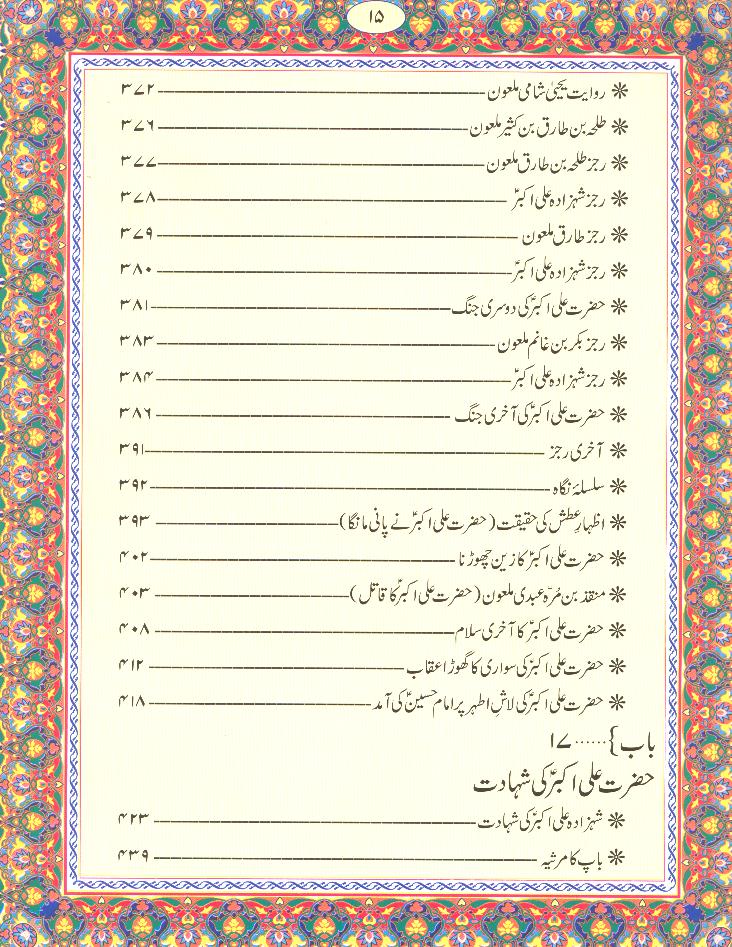 ۱۵
❋ روایت یحییٰ شامی ملعون ۳۷۲
❋ طلحہ بن طارق بن کثیر ملعون ۳۷۶
❋ رجز طلحہ بن طارق ملعون ۳۷۷
❋ رجز شہزادہ علی اکبرؑ ۳۷۸
❋ رجز طارق ملعون ۳۷۹
❋ رجز شہزادہ علی اکبرؑ ۳۸۰
❋ حضرت علی اکبرؑ کی دوسری جنگ ۳۸۱
❋ رجز بکر بن غانم ملعون ۳۸۳
❋ رجز شہزادہ علی اکبرؑ ۳۸۴
❋ حضرت علی اکبرؑ کی آخری جنگ ۳۸۶
❋ آخری رجز ۳۹۱
❋ سلسلۂ نگاہ ۳۹۲
❋ اظہارِ عطش کی حقیقت (حضرت علی اکبرؑ نے پانی مانگا) ۳۹۳
❋ حضرت علی اکبرؑ کا زین چھوڑنا ۴۰۲
❋ منقذ بن مُرّہ عبدی ملعون (حضرت علی اکبرؑ کا قاتل) ۴۰۳
❋ حضرت علی اکبرؑ کا آخری سلام ۴۰۸
❋ حضرت علی اکبرؑ کی سواری کا گھوڑا عقاب ۴۱۲
❋ حضرت علی اکبرؑ کی لاشِ اطہر پر امام حسینؑ کی آمد ۴۱۸
باب } ...... ۱۷
حضرت علی اکبرؑ کی شہادت
❋ شہزادہ علی اکبرؑ کی شہادت ۴۲۳
❋ باپ کا مرثیہ ۴۳۹